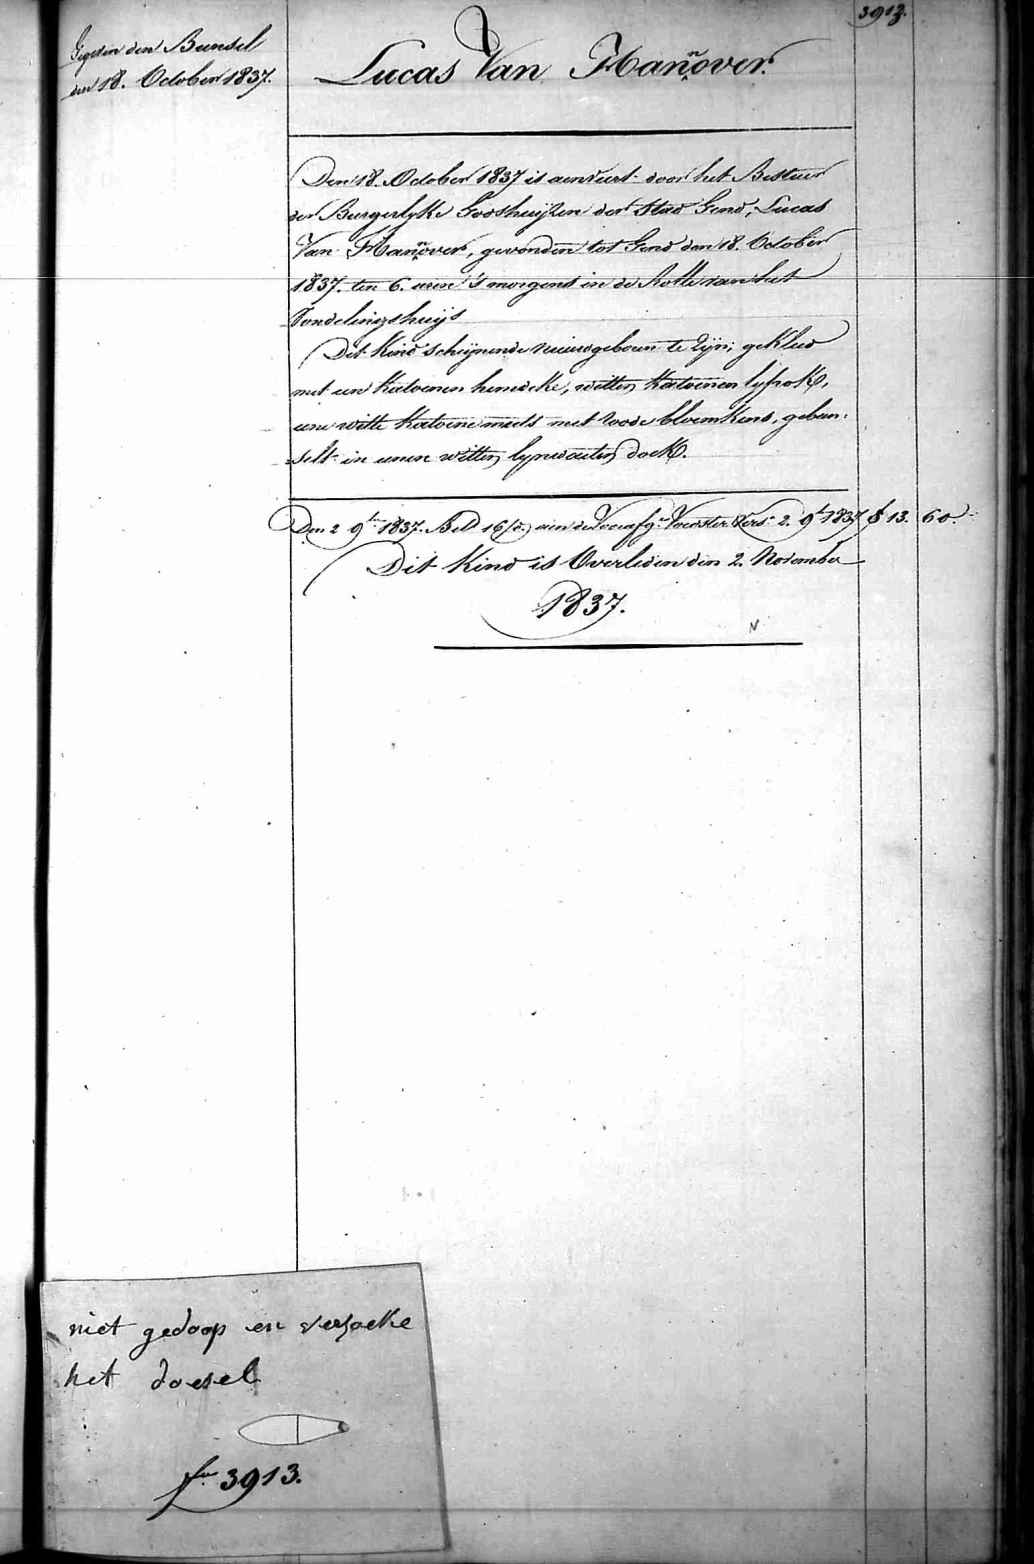 3913.
Gegeven den Bunsel
den 18. October 1837.
Lucas Van Hañover.
Den 18. October 1837 is aenveert door het Bestuur
der Burgerlyke Godshuijzen der Stad Gend, Lucas
Van Hañover, gevonden tot Gend den 18. October
1837. ten 6. uren 's morgens in de Rolle van het
Vondelingshuijs
Dit Kind schijnende nieuwgeboren te zijn; gekleed
met een katoenen hemdeke, witten katoenen lyfrok,
eene witte katoene muts met roode bloemkens, gebun-
selt in eenen witten lynwaeten doek.
Den 2 9bre 1837. aen de Voedster 2. 9bre 1837 13. 60.
Dit Kind is Overleden den 2. November
1837.
niet gedoop en versoeke
het doesel
fo 3913.